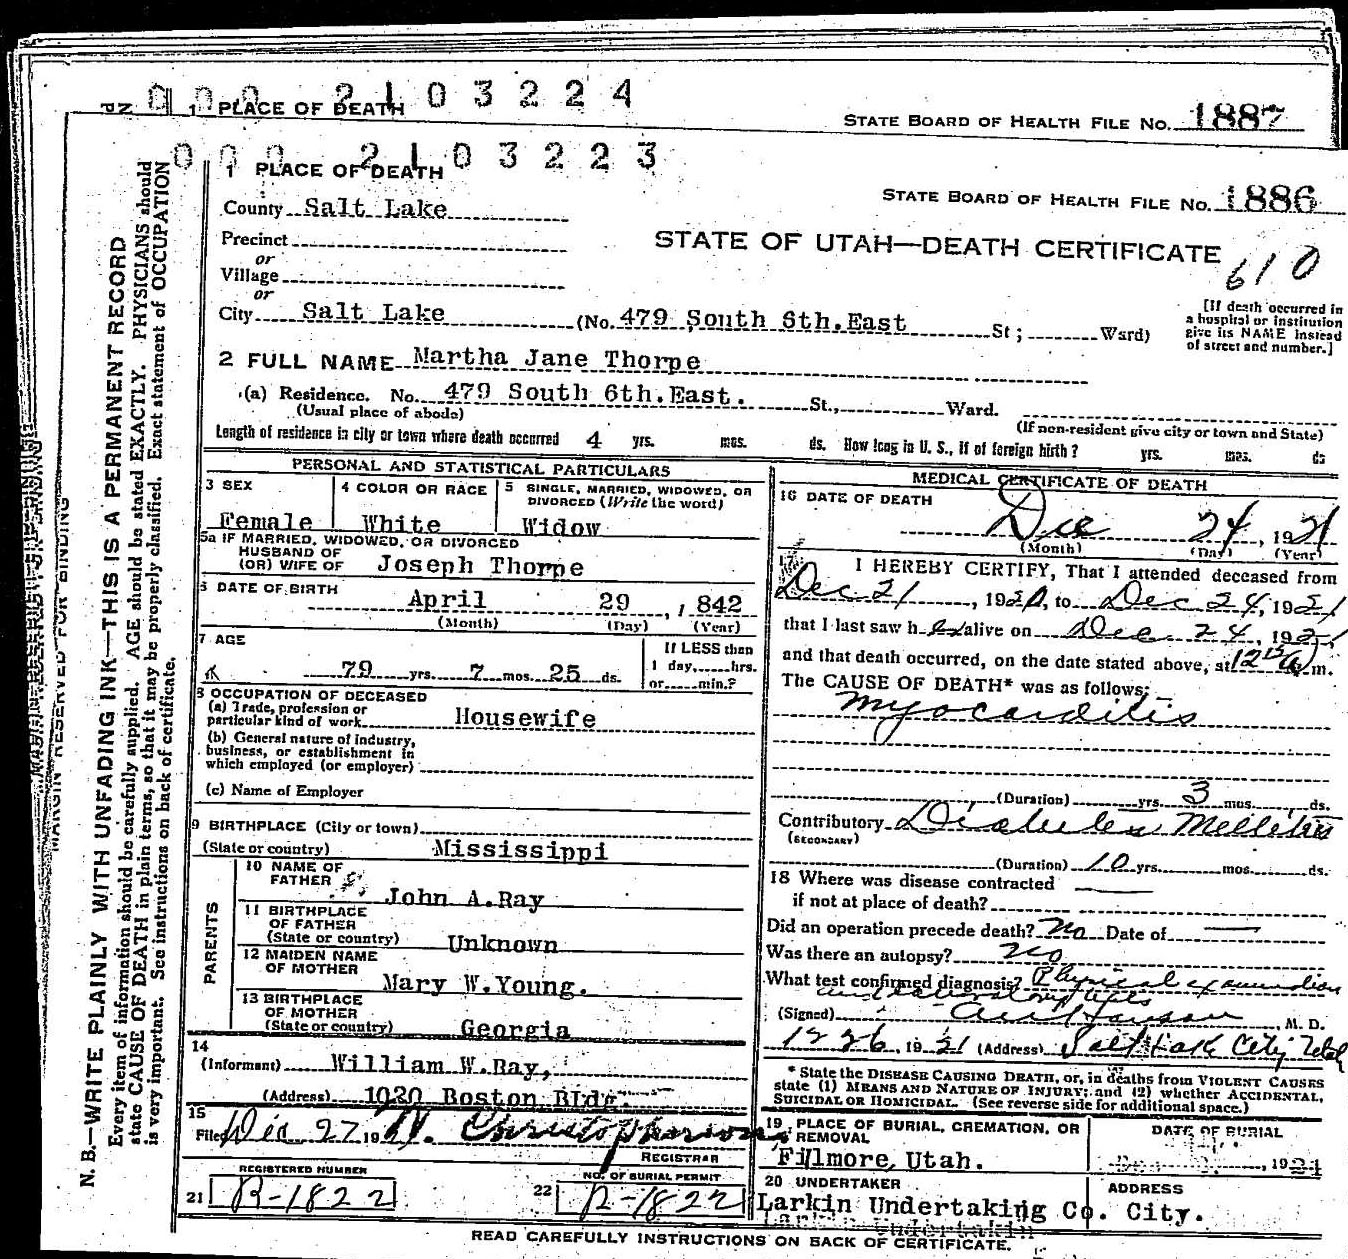 0 0 0 2 1 0 3 2 2 4
1 PLACE OF DEATH
STATE BOARD OF HEALTH FILE No. 1887
0 0 0 2 1 0 3 2 2 3
1 PLACE OF DEATH
STATE BOARD OF HEALTH FILE No. 1886
County Salt Lake
Precinct
or
Village
or
STATE OF UTAH—DEATH CERTIFICATE
610
City Salt Lake (No. 479 South 6th.East St; Ward)
[If death occurred in
a hospital or institution
give its NAME instead
of street and number.]
2 FULL NAME Martha Jane Thorpe
(a) Residence. No. 479 South 6th.East. St., Ward.
(Usual place of abode)
(If non-resident give city or town and State)
Length of residence in city or town where death occurred 4 yrs. mos. ds. How long in U. S., if of foreign birth? yrs. mos. ds
PERSONAL AND STATISTICAL PARTICULARS
3 SEX
Female
4 COLOR OR RACE
White
5 SINGLE, MARRIED, WIDOWED, OR
DIVORCED (Write the word)
Widow
5a IF MARRIED, WIDOWED, OR DIVORCED
HUSBAND OF
(OR) WIFE OF Joseph Thorpe
6 DATE OF BIRTH
April 29, 1842
(Month) (Day) (Year)
7 AGE
79 yrs. 7 mos. 25 ds.
If LESS than
1 day, hrs.
or min.?
8 OCCUPATION OF DECEASED
(a) Trade, profession or
particular kind of work Housewife
(b) General nature of industry,
business, or establishment in
which employed (or employer)
(c) Name of Employer
9 BIRTHPLACE (City or town)
(State or country) Mississippi
PARENTS
10 NAME OF
FATHER John A.Ray
11 BIRTHPLACE
OF FATHER
(State or country) Unknown
12 MAIDEN NAME
OF MOTHER
Mary W.Young.
13 BIRTHPLACE
OF MOTHER
(State or country) Georgia
14
(Informant) William W.Ray,
(Address) 1020 Boston Bldg.
15
Filed Dec 27 1921
REGISTRAR
REGISTERED NUMBER
21 B-1822
NO. OF BURIAL PERMIT
22 B-1822
MEDICAL CERTIFICATE OF DEATH
16 DATE OF DEATH
Dec 24, 1921
(Month) (Day) (Year)
I HEREBY CERTIFY, That I attended deceased from
Dec 21, 1921, to Dec 24, 1921
that I last saw her alive on Dec 24, 1921
and that death occurred, on the date stated above, at 12 15 A m.
The CAUSE OF DEATH* was as follows:
Myocarditis
(Duration) yrs. 3 mos. ds.
Contributory Diabetes Mellitus
(SECONDARY)
(Duration) 10 yrs. mos. ds.
18 Where was disease contracted
if not at place of death?
Did an operation precede death? No Date of
Was there an autopsy? No
What test confirmed diagnosis? Physical examination
and laboratory tests
(Signed) M. D.
12 26, 1921 (Address) Salt Lake City Utah
* State the DISEASE CAUSING DEATH, or, in deaths from VIOLENT CAUSES
state (1) MEANS AND NATURE OF INJURY; and (2) whether ACCIDENTAL,
SUICIDAL OR HOMICIDAL. (See reverse side for additional space.)
19 PLACE OF BURIAL, CREMATION, OR
REMOVAL
Fillmore, Utah.
DATE OF BURIAL
20 UNDERTAKER
Larkin Undertaking Co.
ADDRESS
City.
READ CAREFULLY INSTRUCTIONS ON BACK OF CERTIFICATE.
MARGIN RESERVED FOR BINDING
N. B.—WRITE PLAINLY WITH UNFADING INK—THIS IS A PERMANENT RECORD
Every item of information should be carefully supplied. AGE should be stated EXACTLY. PHYSICIANS should
state CAUSE OF DEATH in plain terms, so that it may be properly classified. Exact statement of OCCUPATION
is very important. See instructions on back of certificate.